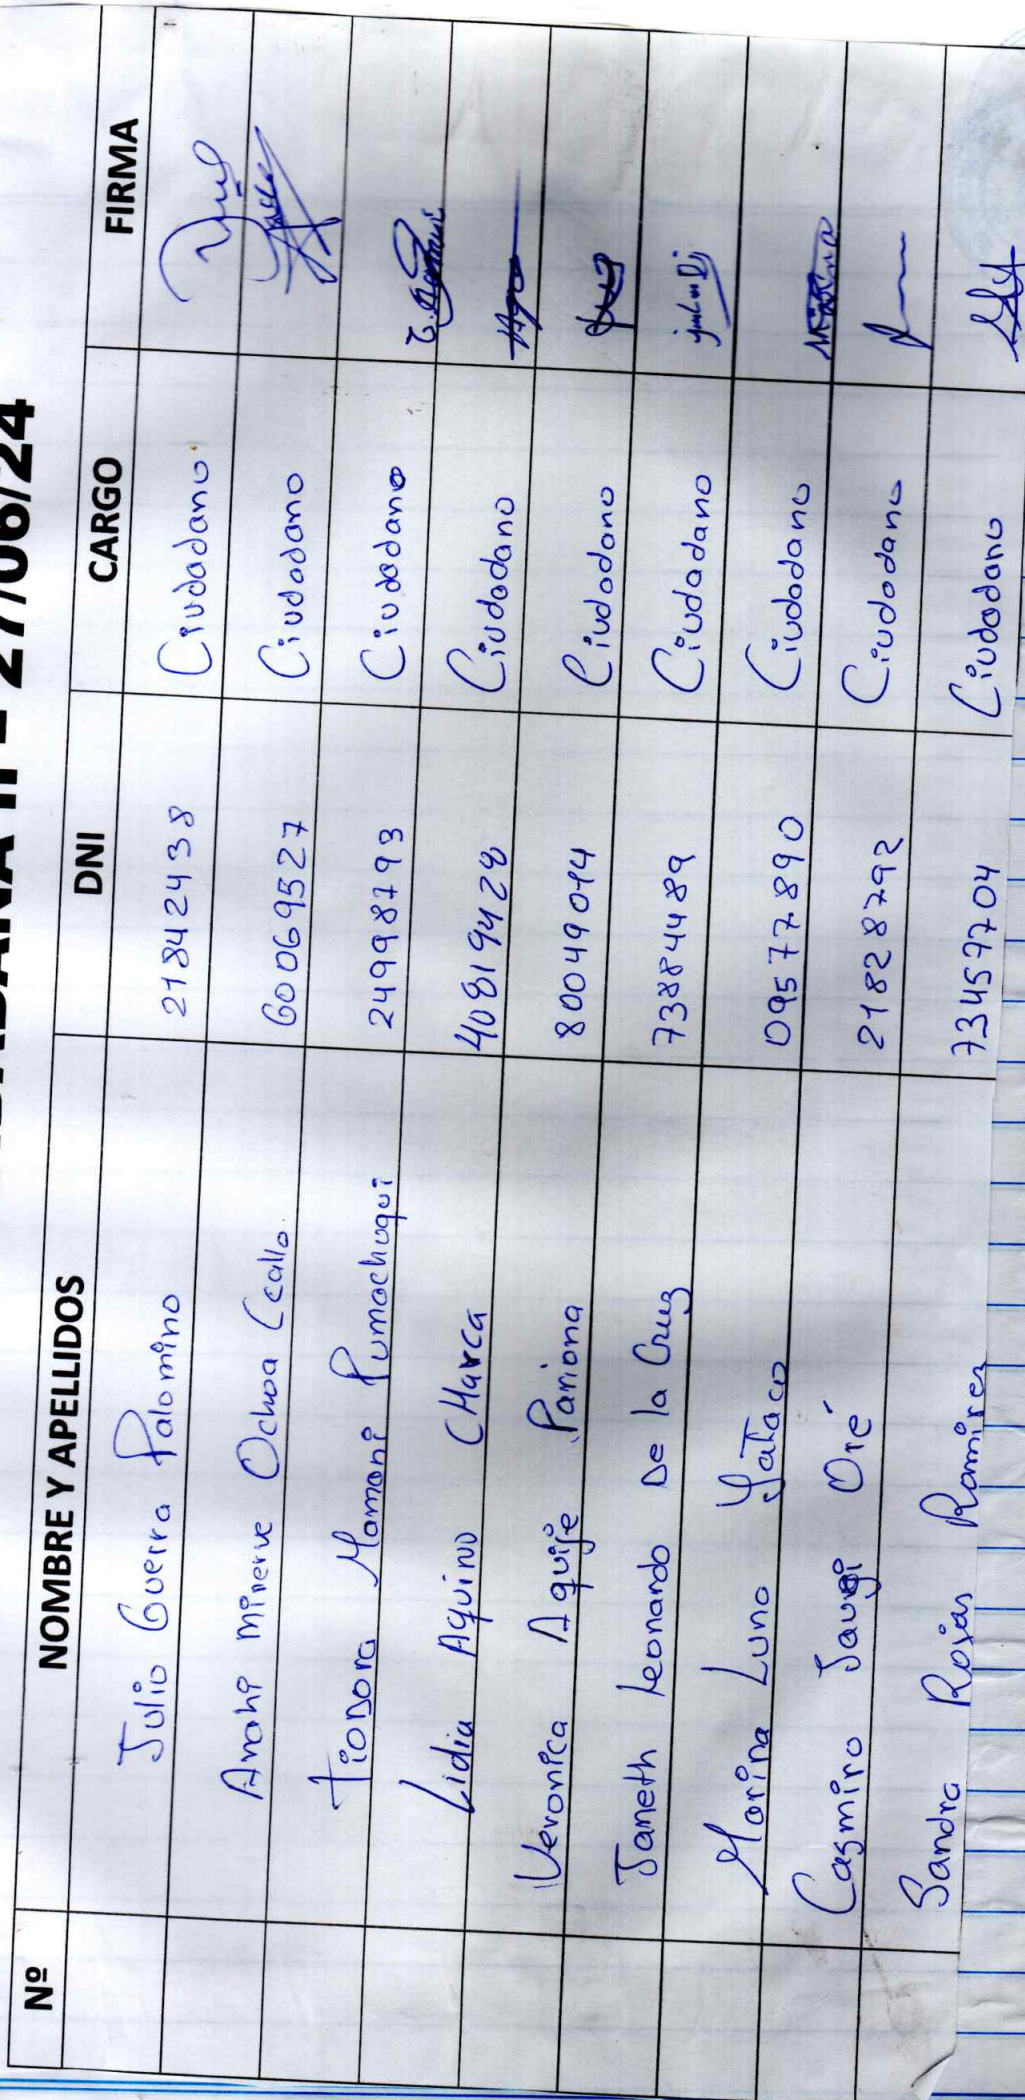 II - 27/06/24
Nº NOMBRE Y APELLIDOS DNI CARGO FIRMA
Julio Guerra Palomino 21842438 Ciudadano
Anahi Minerve Ochoa Ccallo. 60069527 Ciudadano
Tiodora Mamani Pumachuqui 24998793 Ciudadano
Lidia Aquino CHarca 40819428 Ciudadano
Veronica Aquije Pariona 80049014 Ciudadano
Janeth Leonardo De la Cruz 73884489 Ciudadano
Marina Luna Yataco 09577890 Ciudadano
Casmiro Jaugi Oré 21828792 Ciudadano
Sandra Rojas Ramirez 73457704 Ciudadano